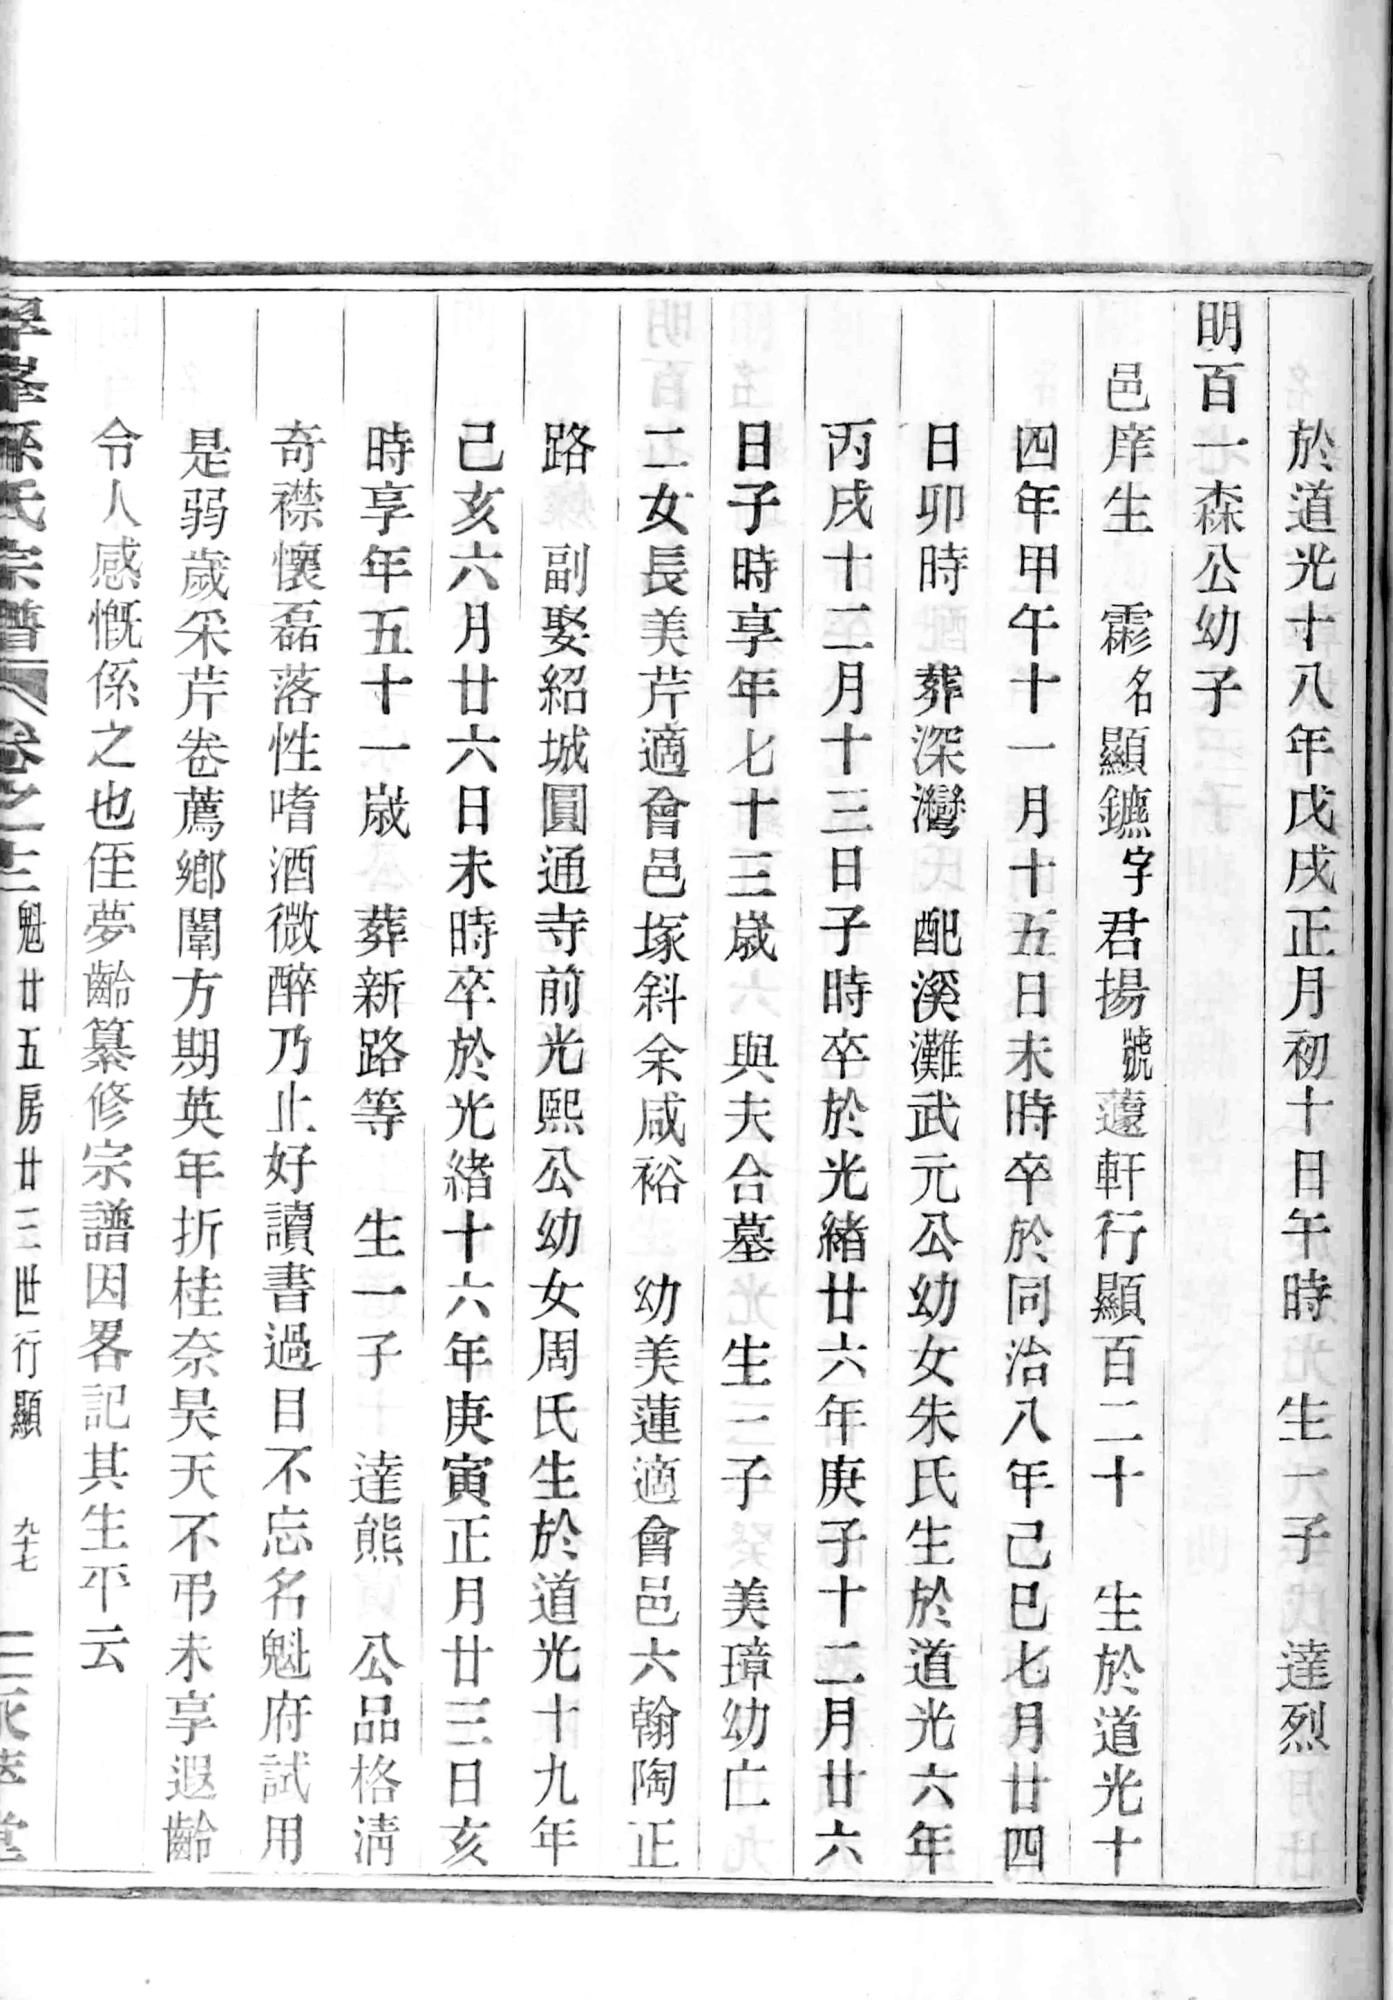 於道光十八年戊戌正月初十日午時　生一子　達烈
明百一森公幼子
邑庠生　霦名顯鑣字君揚號蘧軒行顯百二十　生於道光十
四年甲午十一月十五日未時卒於同治八年己巳七月廿四
日卯時　葬深灣　配溪灘武元公幼女朱氏生於道光六年
丙戌十二月十三日子時卒於光緒廿六年庚子十二月廿六
日子時享年七十三歲　與夫合墓　生一子　美璋幼亡
二女長美芹適會邑塚斜余咸裕　幼美蓮適會邑六翰陶正
路　副娶紹城圓通寺前光熙公幼女周氏生於道光十九年
己亥六月廿六日未時卒於光緒十六年庚寅正月廿三日亥
時享年五十一歲　葬新路等　生一子　達熊　公品格清
奇襟懷磊落性嗜酒微醉乃止好讀書過目不忘名魁府試用
是弱歲采芹卷薦鄉闈方期英年折桂奈昊天不弔未享遐齡
令人感慨係之也侄夢齡纂修宗譜因畧記其生平云
孫氏宗譜　卷之十三　魁廿五房廿三世行顯　九十七　堂